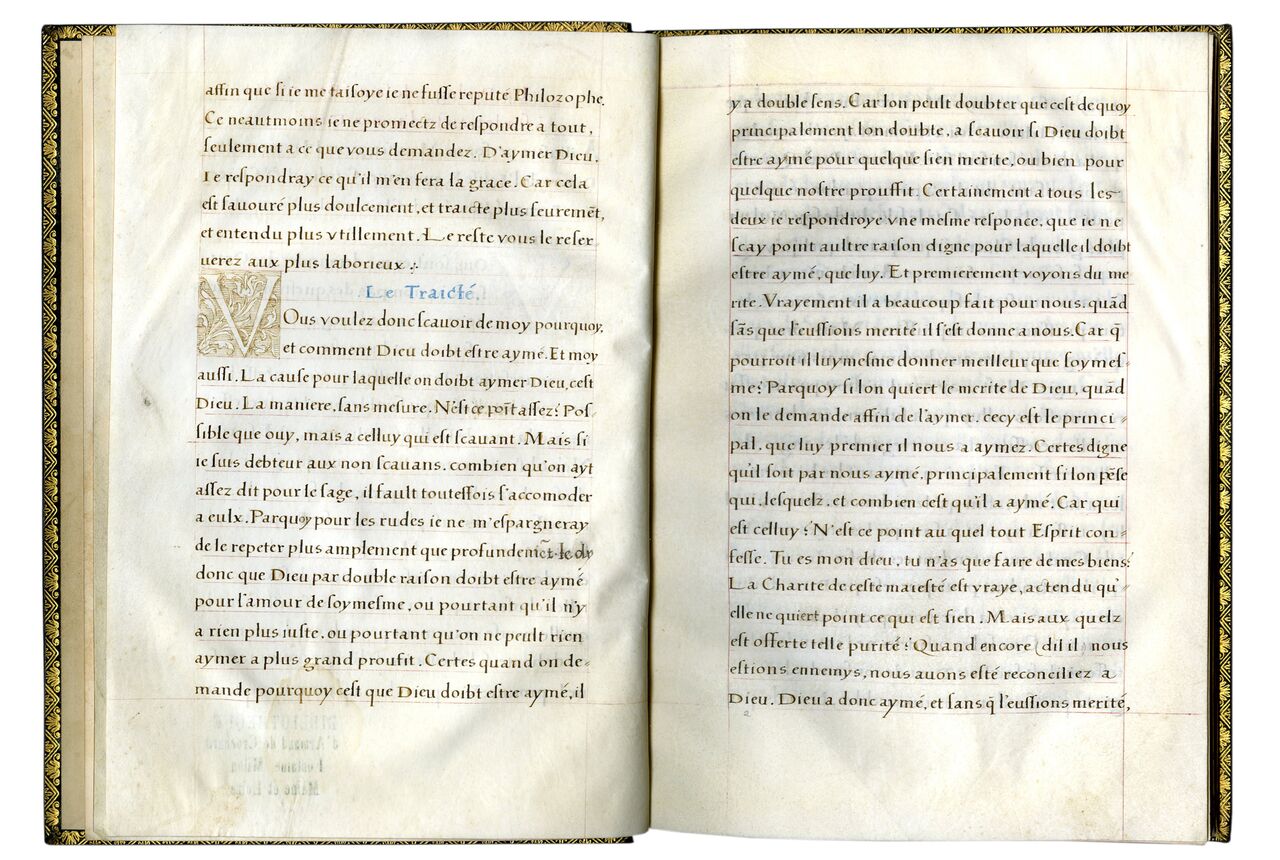 affin que si ie me taisoye ie ne fusse reputé Philozophe.
Ce neautmoins ie ne promectz de respondre a tout,
seulement a ce que vous demandez. D'aymer Dieu.
Ie respondray ce qu'il m'en fera la grace. Car cela
est sauouré plus doulcement, et traicte plus seuremēt,
et entendu plus vtillement. Le reste vous le reser
uerez aux plus laborieux.
Le Traicté.
VOus voulez donc scauoir de moy pourquoy,
et comment Dieu doibt estre aymé. Et moy
aussi. La cause pour laquelle on doibt aymer Dieu, cest
Dieu. La maniere, sans mesure. Nest ce poīt assez? Pos-
sible que ouy, mais a celluy qui est scauant. Mais si
ie suis debteur aux non scauans, combien qu'on ayt
assez dit pour le sage, il fault toutesfois s'accomoder
a eulx. Parquoy pour les rudes ie ne m'espargneray
de le repeter plus amplement que profundemēt. Ie dy
donc que Dieu par double raison doibt estre aymé
pour l'amour de soymesme, ou pourtant qu'il n'y
a rien plus iuste, ou pourtant qu'on ne peult rien
aymer a plus grand proufit. Certes quand on de-
mande pourquoy cest que Dieu doibt estre aymé, il
y a double sens. Car lon peult doubter que cest de quoy
principalement lon doubte, a scauoir si Dieu doibt
estre aymé pour quelque sien merite, ou bien pour
quelque nostre prouffit. Certainement a tous les
deux ie respondroye vne mesme responce, que ie ne
scay point aultre raison digne pour laquelle il doibt
estre aymé, que luy. Et premierement voyons du me
rite. Vrayement il a beaucoup fait pour nous, quād
sās que l'eussions merité il s'est donne a nous. Car q̄
pourroit il luymesme donner meilleur que soymes-
me? Parquoy si lon quiert le merite de Dieu, quād
on le demande affin de l'aymer, cecy est le princi-
pal, que luy premier il nous a aymez. Certes digne
qu'il soit par nous aymé, principalement si lon pēse
qui, lesquelz, et combien cest qu'il a aymé. Car qui
est celluy? N'est ce point au quel tout Esprit con-
fesse. Tu es mon dieu, tu n'as que faire de mes biens?
La Charite de ceste maiesté est vraye, actendu qu'-
elle ne quiert point ce qui est sien. Mais aux quelz
est offerte telle purité? Quand encore (dil il) nous
estions ennemys, nous auons esté reconciliez a
Dieu. Dieu a donc aymé, et sans q̄ l'eussions merité,
2